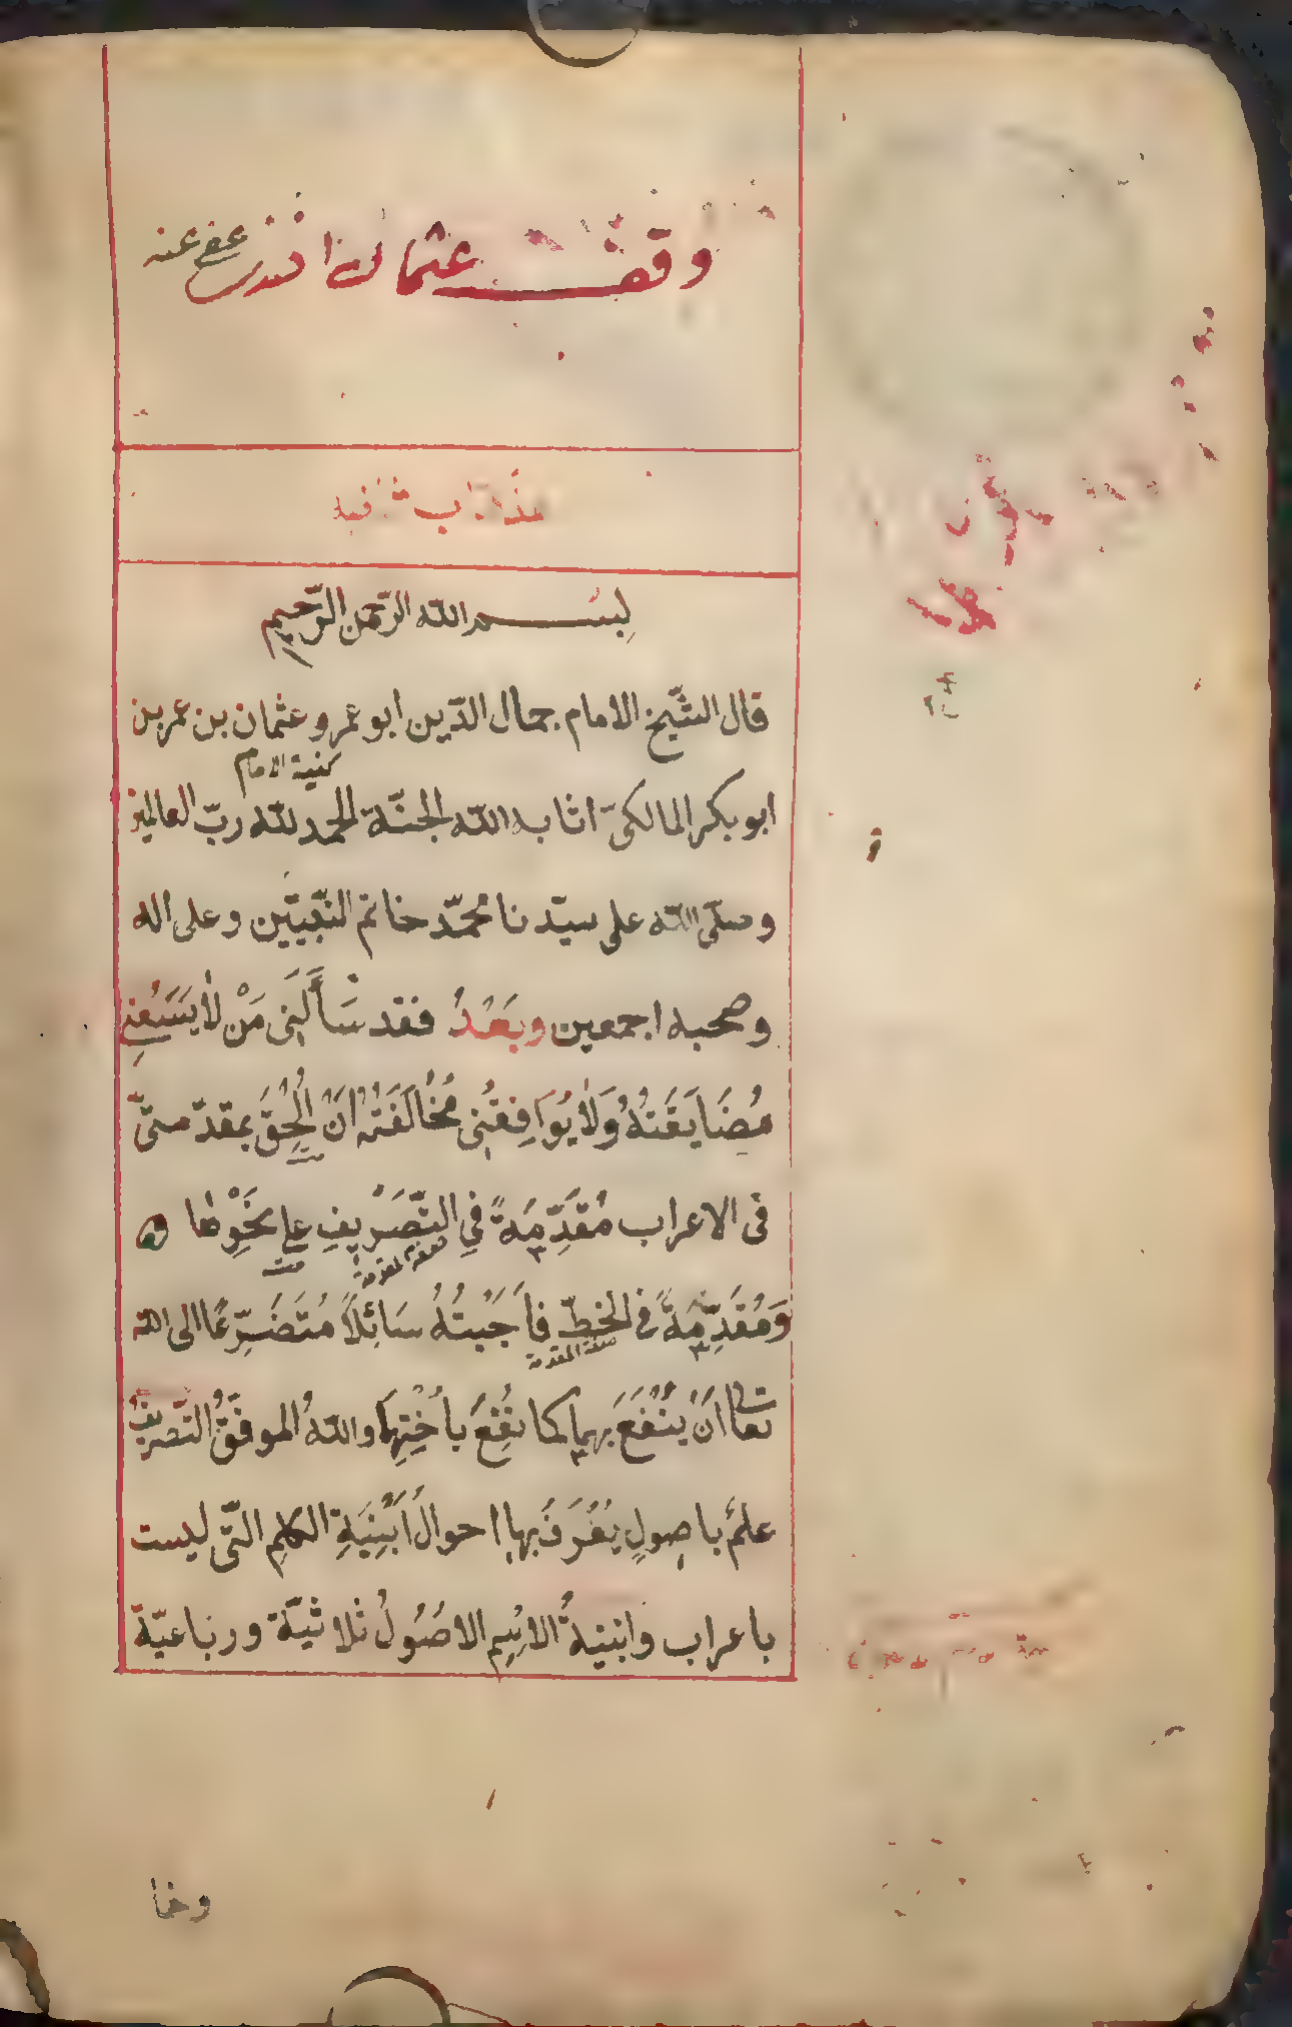 وقف عثمان افندى عفى عنه
هذا كتاب شافيه
بسم الله الرّحمن الرّحيم
قال الشّيخ الامام جمال الدّين ابو عمرو عثمان بن عمر بن
كنية الامام
ابو بكر المالكىّ اثابه الله الجنّة الحمد لله ربّ العالمين
وصلّى الله على سيّدنا محمّد خاتم النّبيّين وعلى اله
وصحبه اجمعين وبَعْدُ فقد سَأَلَنِى مَنْ لاٰ يَسَعُنِى
مُضَايَقَتُهُ وَلاٰ يُوَافِقُنِى مُخٰالَفَتُهُ اَنْ اُلْحِقَ بمقدّمتىّ
فى الاعراب مُقَدِّمَةً فِي التّصَرْيفِ على نَحْوِهٰا
صفة المقدمة
وَمُقَدِّمَةً فى الخطِّ فاَجَبْتُهُ سَائِلاً مُتَضَرِّعًا الى الله
صفة المقدمة
تعالى اَنْ يَنْفَعَ بهما كما نفَعَ باُخْتِهِمَا واللهُ الموفّقُ التّصريفُ
علمٌ باصولٍ يُعْرَفُ بها احوالُ اَبْنِيَةِ الكلمِ التّى ليست
باعراب وابنيةُ الاسْمِ الاصُولُ ثلاثيّة ورباعيّة
وخما